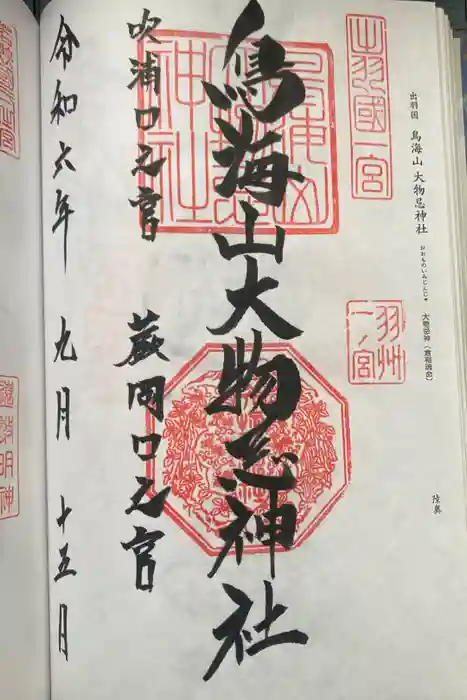 陸奥
出羽国 鳥海山 大物忌神社 おおものいみじんじゃ 大物忌神(倉稲魂命)
出羽國一宮
羽州一ノ宮
鳥海山大物忌神社
吹浦口之宮 蕨岡口之宮
令和六年 九月 十五日